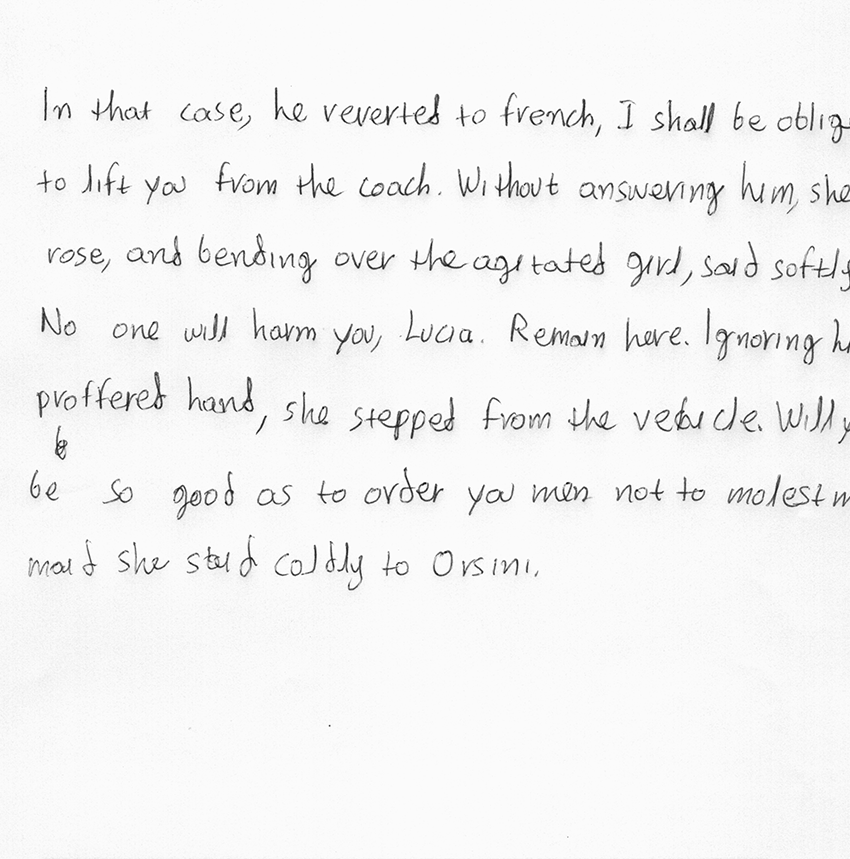 In that case, he reverted to french, I shall be oblig
to lift you from the coach. Without answering him, she
rose, and bending over the agitated girl, said softly
No one will harm you, Lucia. Remain here. Ignoring hi
proffered hand, she stepped from the vehicle. Will y
be so good as to order you men not to molest m
maid she said coldly to Orsini.